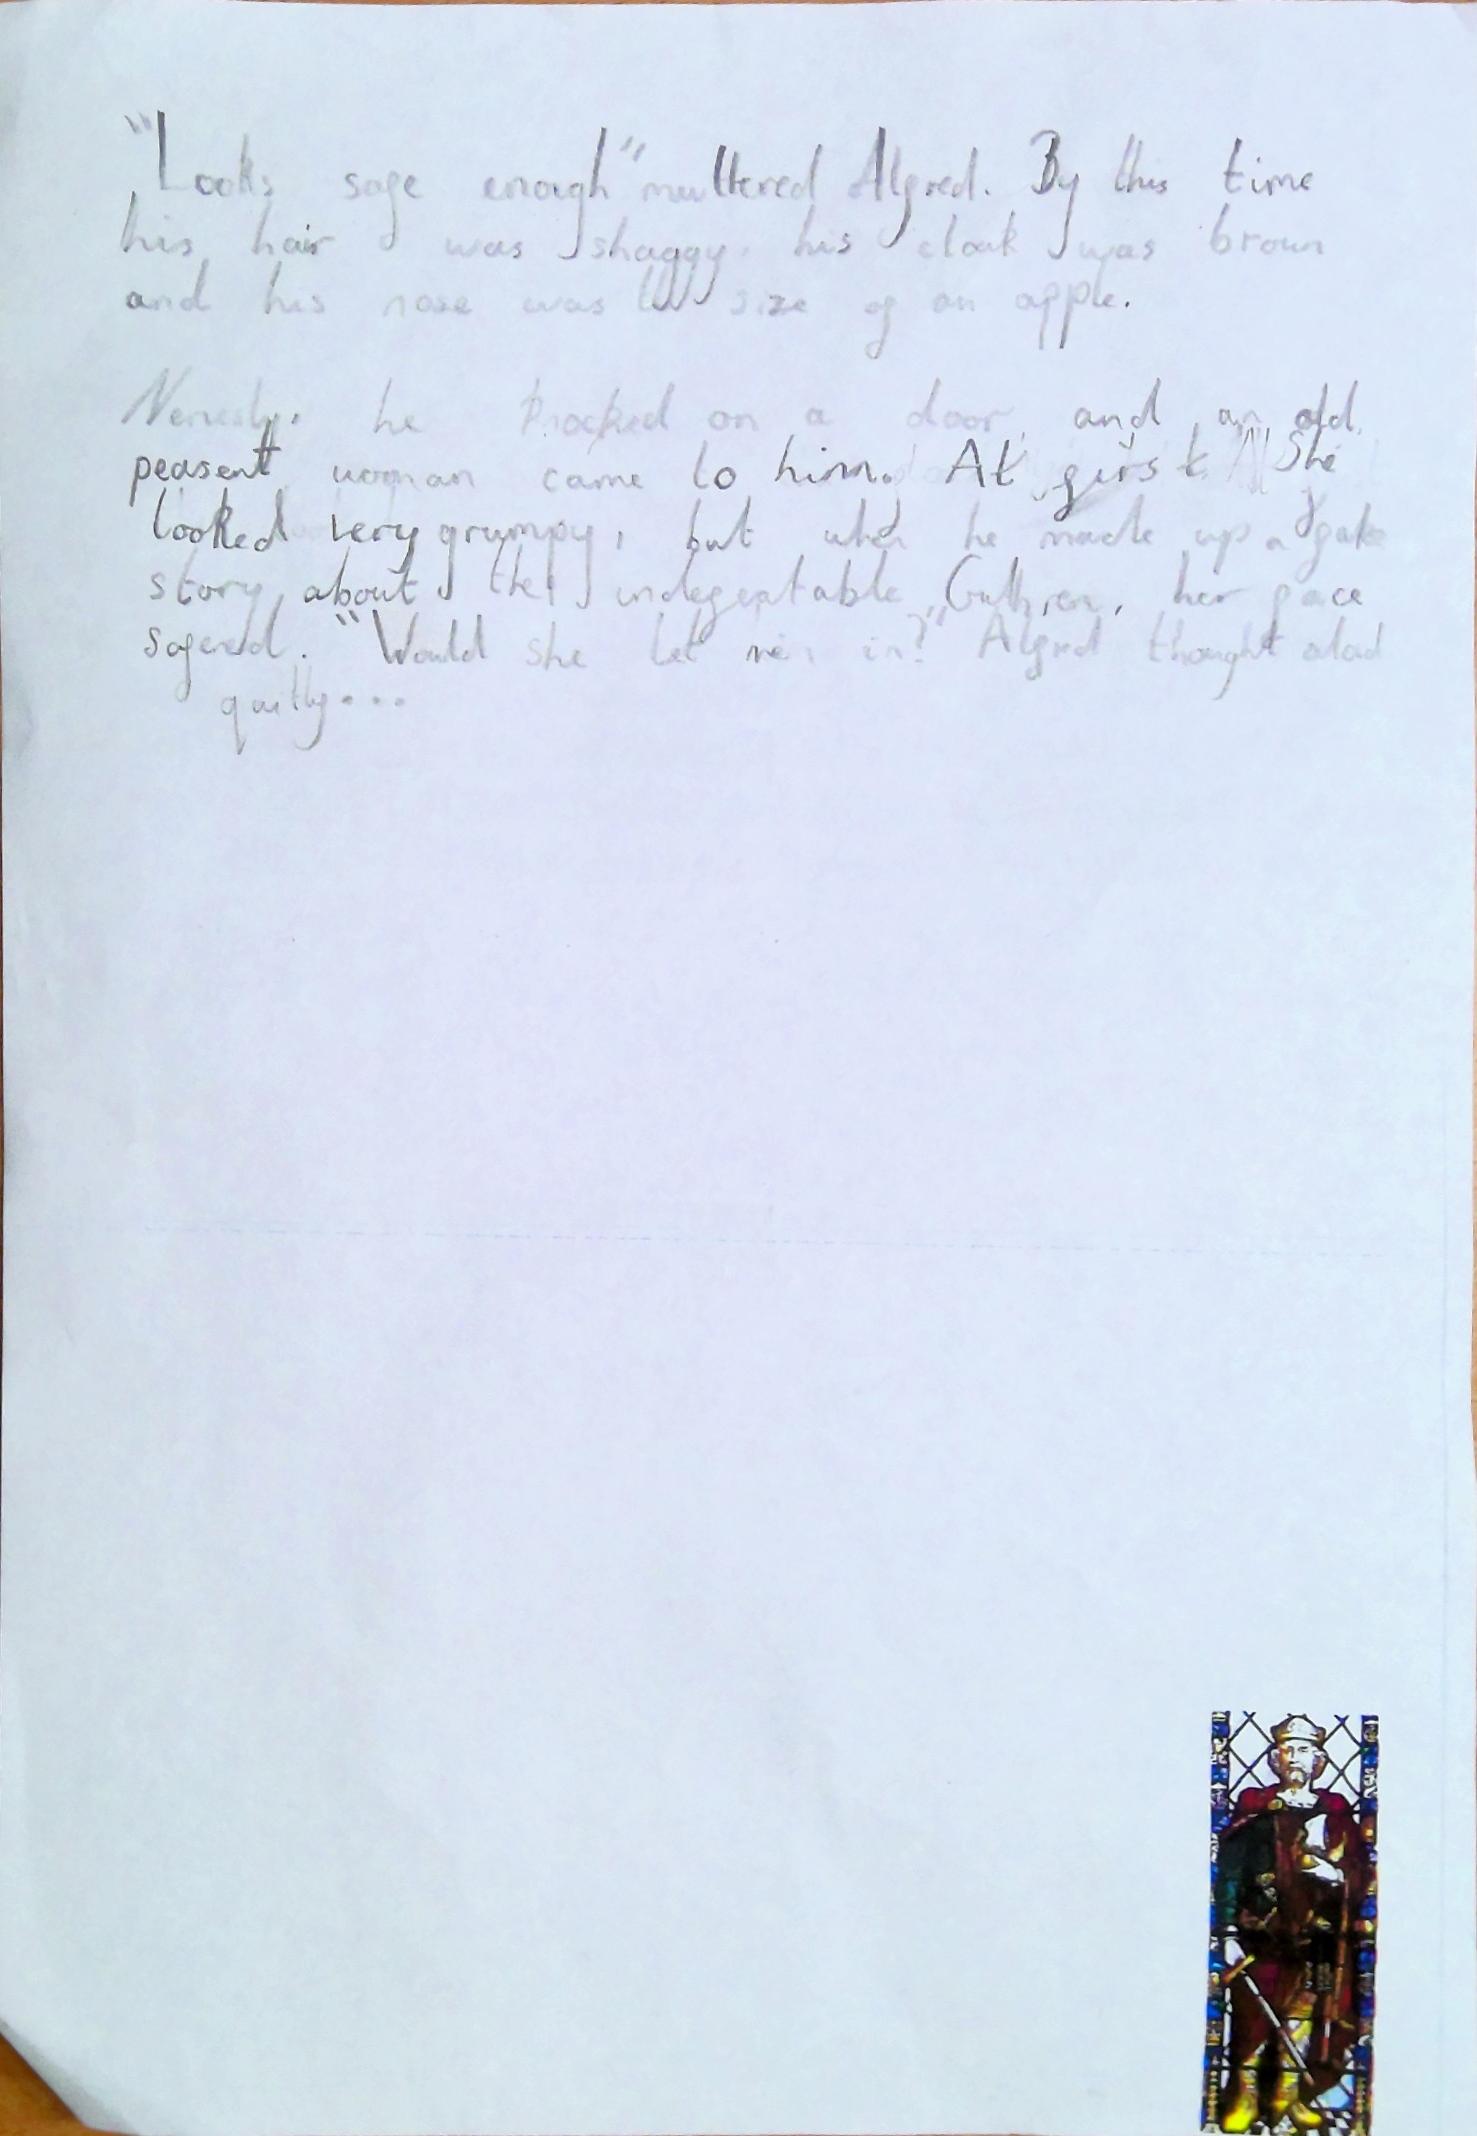 "Looks safe enough" muttered Alfred. By this time
his hair was shaggy, his cloak was brown
and his nose was the size of an apple.
Nervesly, he knocked on a door, and an old
peasent woman came to him. At first She
looked very grumpy, but when he made up a fake
story about the indefeatable Guthren, her face
sofened. "Would she let me in?" Alfred thought alod
quitly...